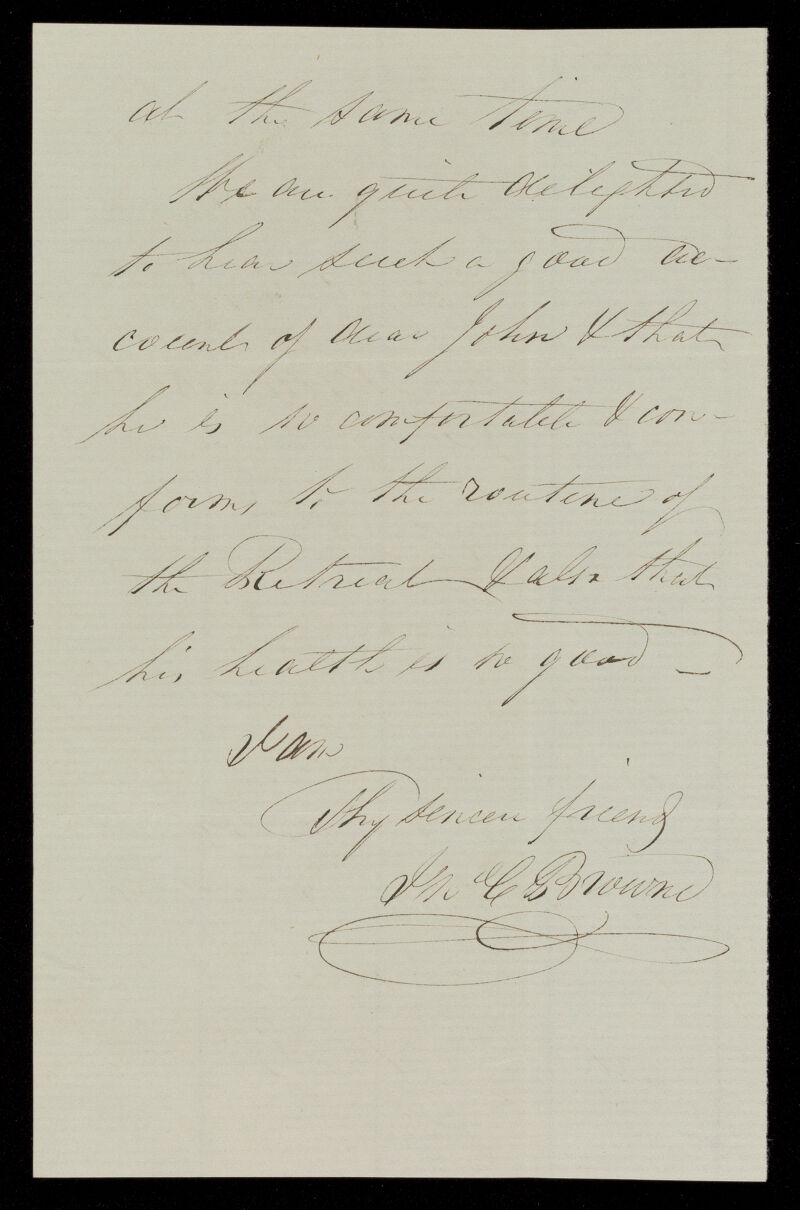 at the same time
We are quite delighted
to hear such a good ac-
count of dear John & that
he is so comfortable & con-
forms to the routine of
the Retreat & also that
his health is so good —
I am
Thy sincere friend
Jno C Browne